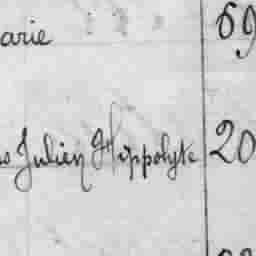 arie 69
Julien Hippolyte 20